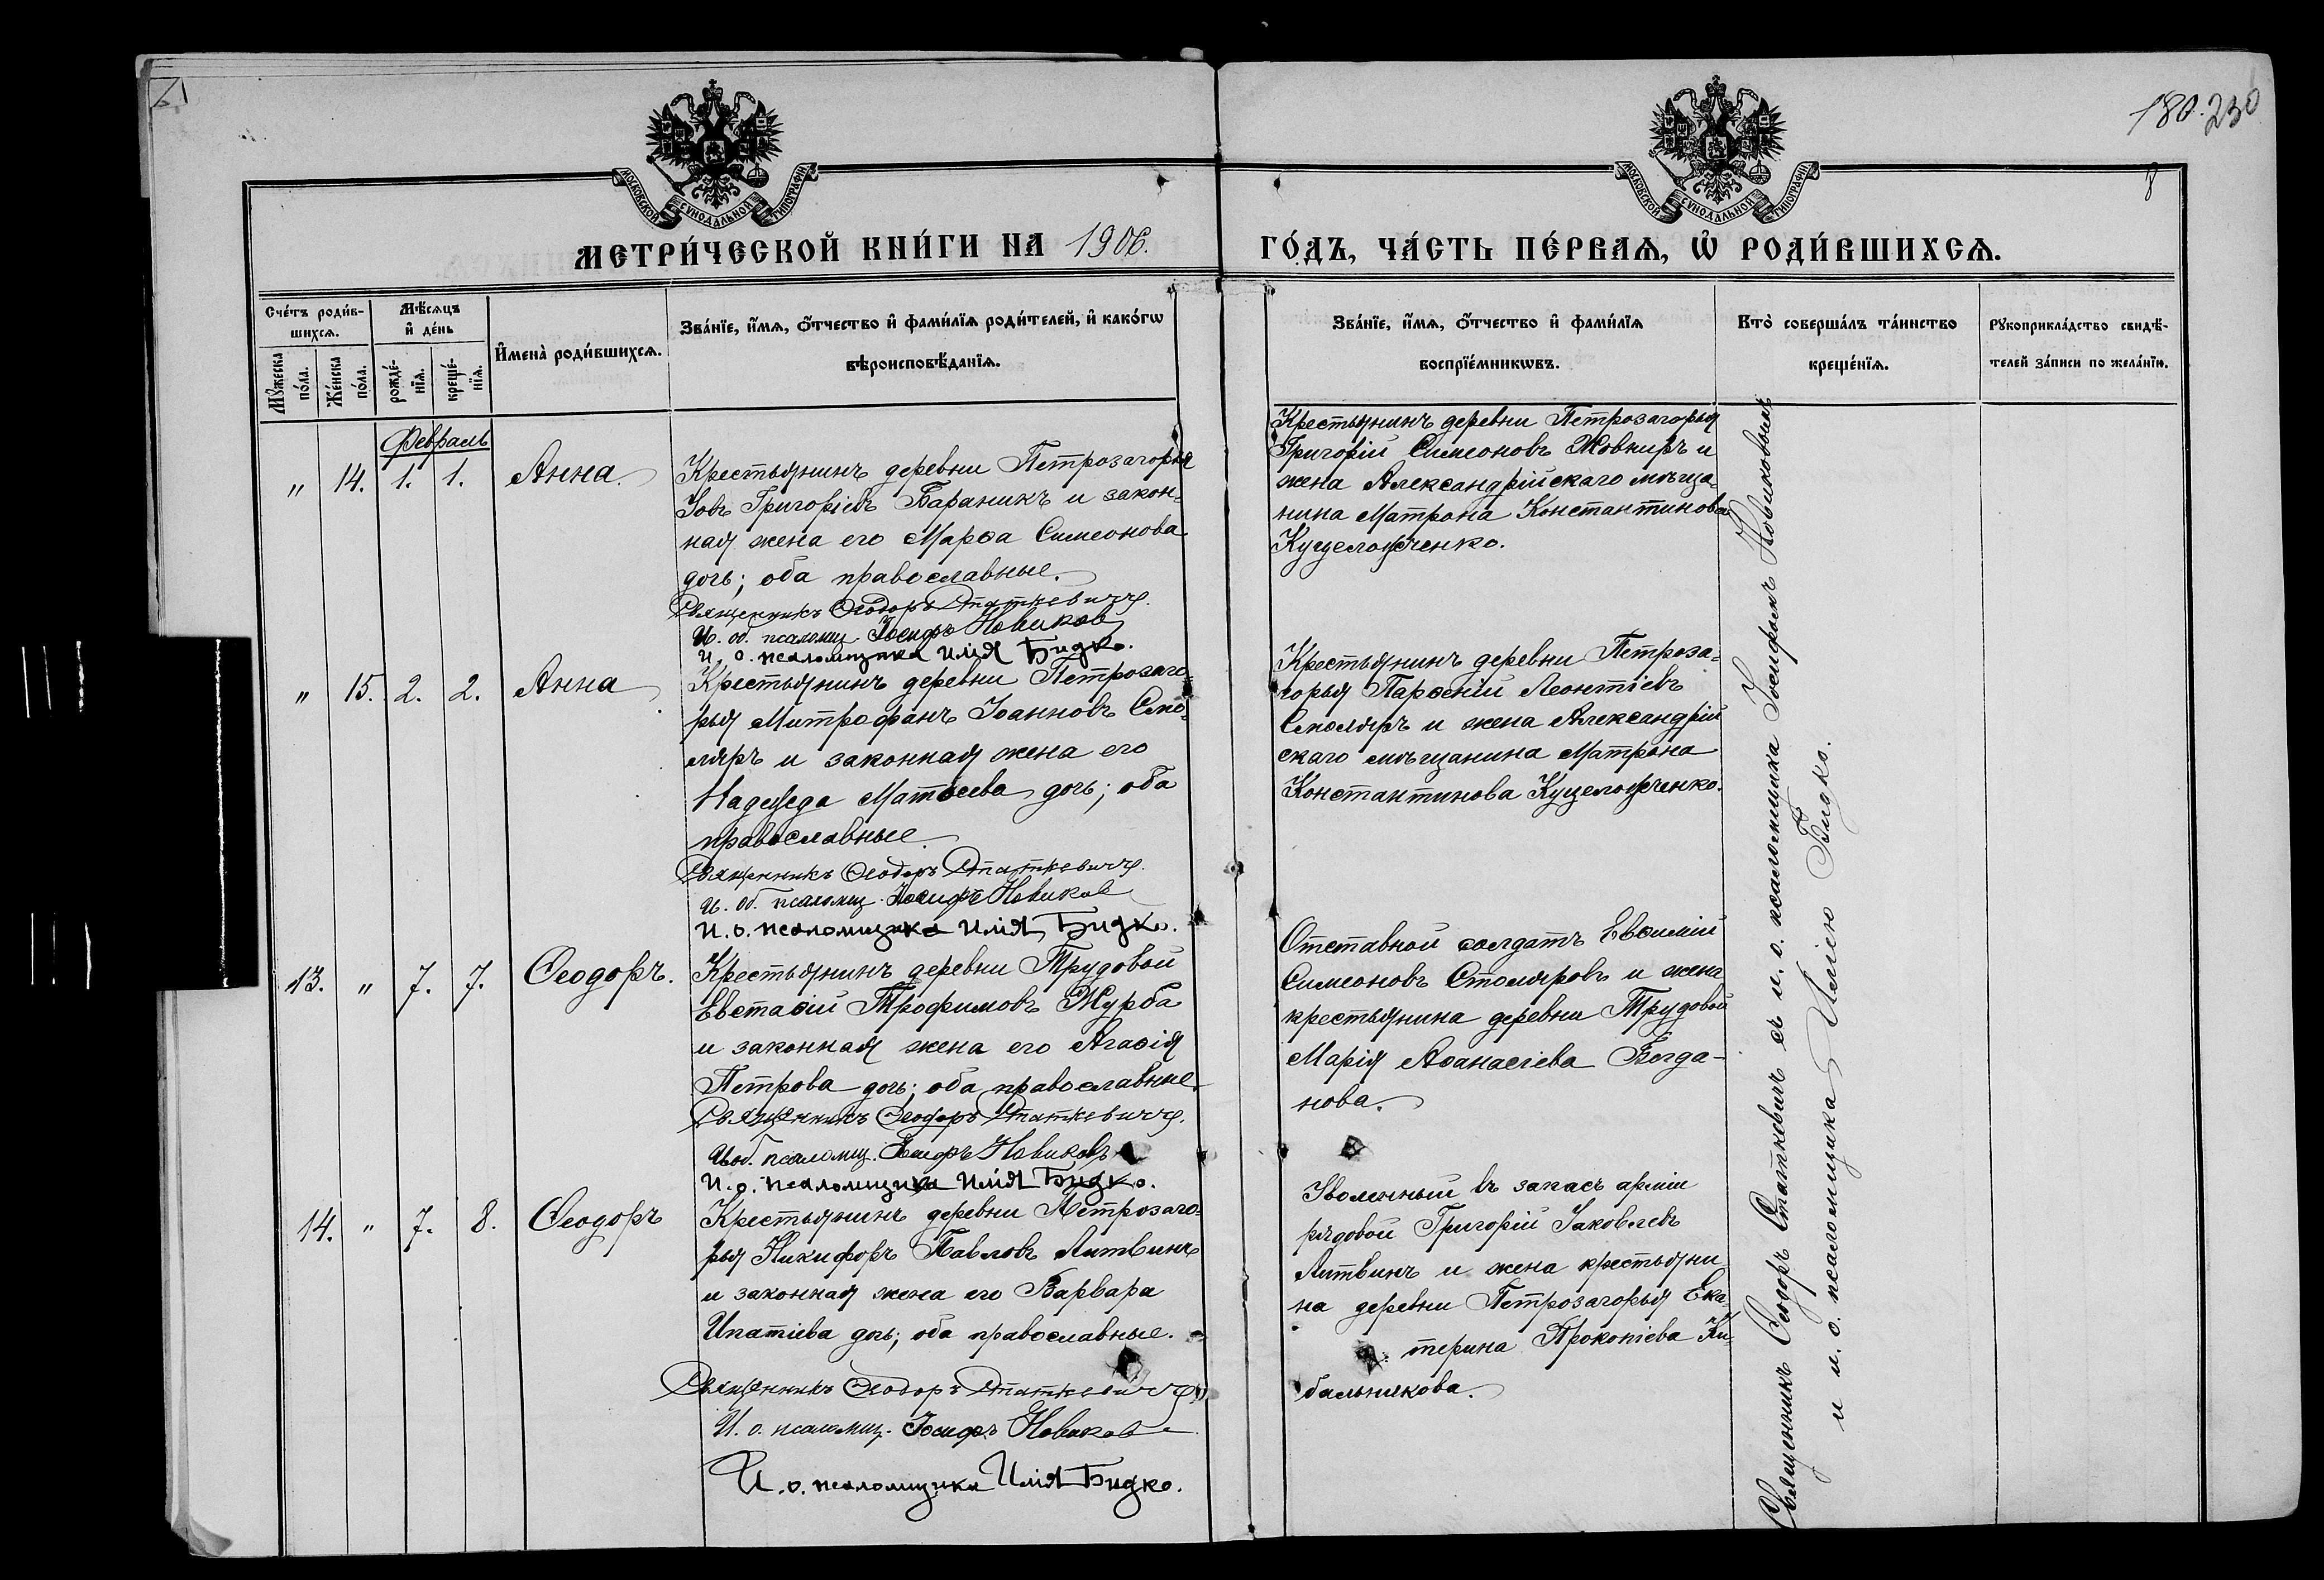 180. 230
8
МОСКОВСКОЙ СѴНОДАЛЬНОЙ ТИПОГРАФІИ
МОСКОВСКОЙ СѴНОДАЛЬНОЙ ТИПОГРАФІИ
МЕТРИ́ЧЕСКОЙ КНИ́ГИ НА 1906. ГО́ДЪ, ЧА́СТЬ ПЕ́РВАЯ, Ѡ РОДИ́ВШИХСЯ.
Сче́тъ роди́в-
шихся.
Мѣ́сяцъ
и де́нь
Мꙋжеска
по́ла.
Же́нска
по́ла.
рожде́-
нїя.
креще́-
нїя.
И҆мена̀ роди́вшихся.
Зва́нїе, и҆́мя, ѻ҆́тчество и҆ фами́лїя роди́телей, и҆ како́гѡ
вѣроисповѣ́данїя.
Зва́нїе, и҆́мя, ѻ҆́тчество и҆ фами́лїя
воспрїе́мникѡвъ.
Кто̀ соверша́лъ та́инство
креще́нїя.
Рꙋкоприкла́дство свидѣ́-
телей за́писи по жела́нїю.
Февраль
" 14. 1. 1. Анна.
Крестьянинъ деревни Петрозагорья
Іовъ Григоріевъ Бараникъ и закон-
ная жена его Марѳа Симеонова
дочь; оба православные.
Священникъ Ѳеодоръ Статкевичъ.
И. об. псаломщ. Іосифъ Новиков
И. о. псаломщика Илія Бидко.
Крестьянинъ деревни Петрозагорья
Григорій Симеоновъ Жовниръ и
жена Александрійскаго мѣща-
нина Матрона Константинова
Куцелопченко.
" 15. 2. 2. Анна
Крестьянинъ деревни Петрозаго-
рья Митрофанъ Іоанновъ Смо-
ляръ и законная жена его
Надежда Матѳеева дочь; оба
православные.
Священникъ Ѳеодоръ Статкевичъ.
И. об. псаломщ. Іосифъ Новиков
И. о. псаломщика Илія Бидко.
Крестьянинъ деревни Петроза-
горья Парѳеній Леонтіевъ
Смоляръ и жена Александрій
скаго мѣщанина Матрона
Константинова Куцелопченко.
13. " 7. 7. Ѳеодоръ.
Крестьянинъ деревни Трудовой
Евстаѳій Трофимовъ Журба
и законная жена его Агаѳія
Петрова дочь; оба православные.
Священникъ Ѳеодоръ Статкевичъ.
И об. псаломщ. Іосифъ Новиковъ
И. о. псаломщика Илія Бидко.
Отставной солдатъ Евѳимій
Симеоновъ Столяровъ и жена
крестьянина деревни Трудовой
Марія Аѳанасіева Богда-
нова.
14. " 7. 8. Ѳеодоръ
Крестьянинъ деревни Петрозаго-
рья Никифоръ Павловъ Литвинъ
и законная жена его Варвара
Ипатіева дочь; оба православные.
Священникъ Ѳеодоръ Статкевичъ
И. о. псаломщ. Іосифъ Новиков
И. о. псаломщика Илія Бидко.
Уволенный въ запасъ арміи
рядовой Григорій Іаковлевъ
Литвинъ и жена крестьяни
на деревни Петрозагорья Ека-
терина Прокопіева Ки-
бальникова.
Священникъ Ѳеодоръ Статкевичъ съ и. о. псаломщика Іосифомъ Новиковымъ
и и. о. псаломщика Иліею Бидко.